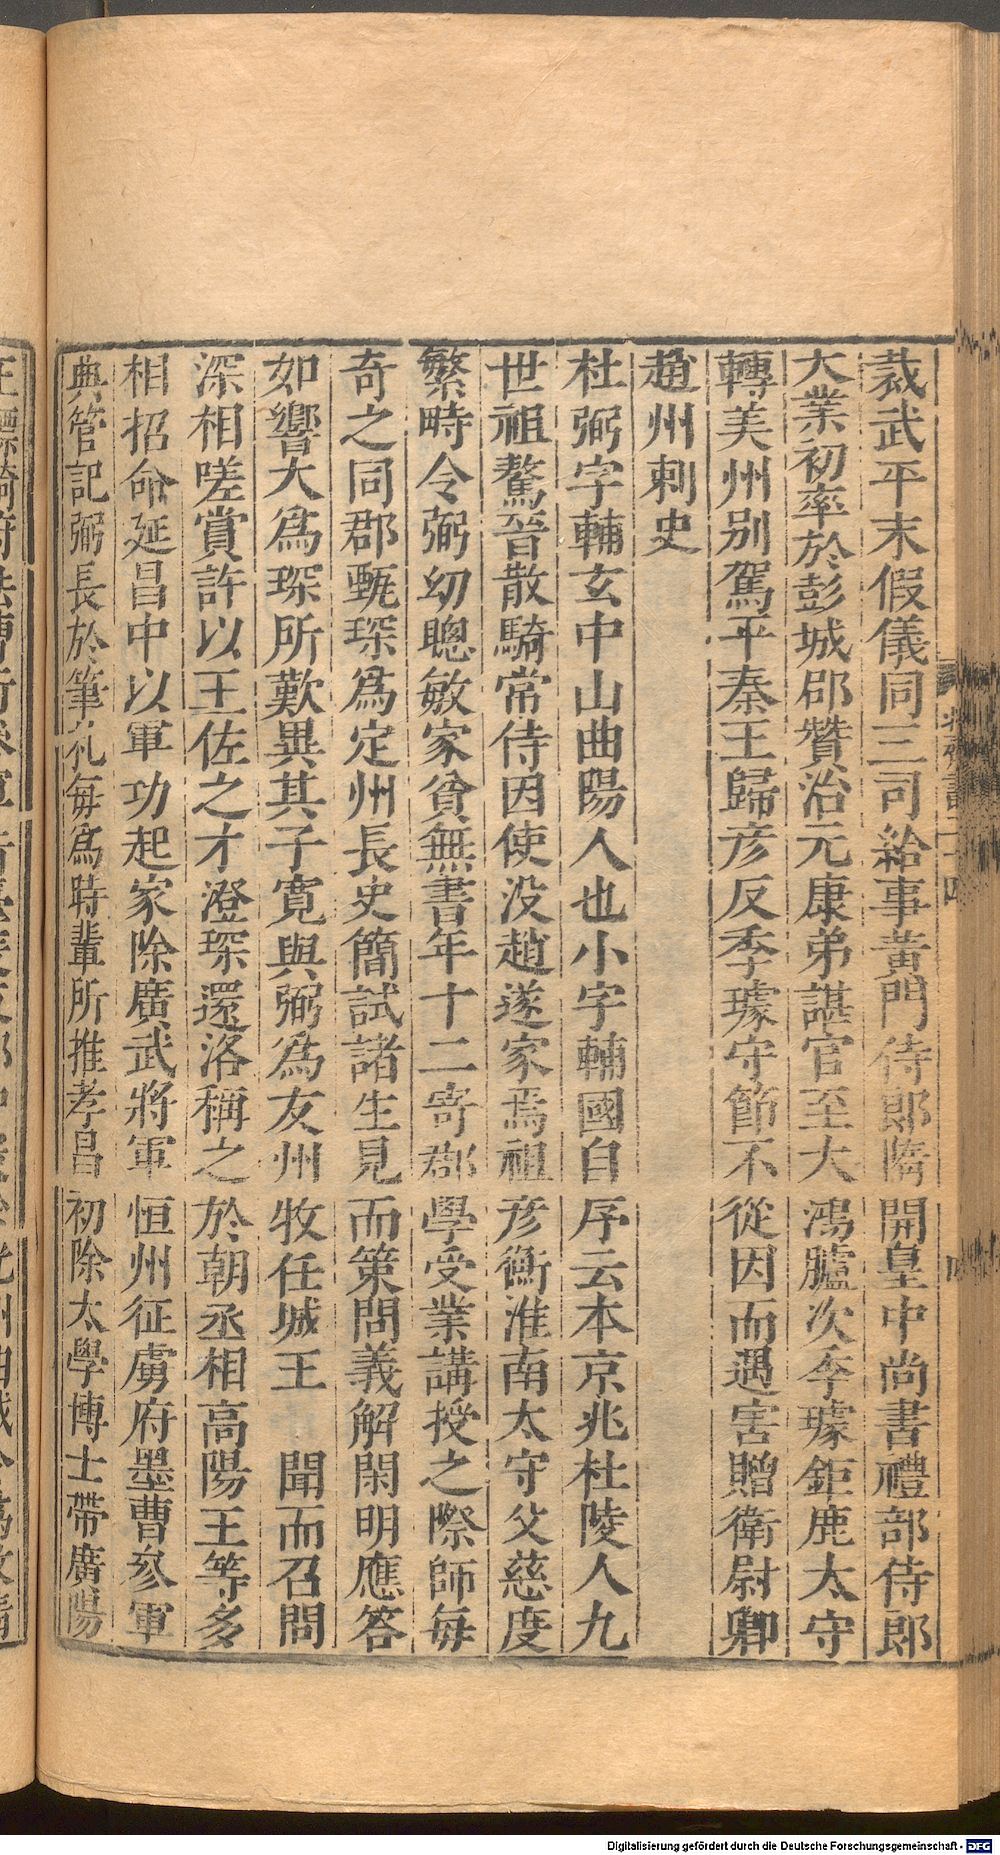 裁武平末假儀同三司給事黃門侍郎隋開皇中尚書禮部侍郎
大業初卒於彭城郡贊治元康弟諶官至大鴻臚次季璩鉅鹿太守
轉美州別駕平秦王歸彦反季璩守節不從因而遇害贈衛尉卿
趙州刺史
杜弼字輔玄中山曲陽人也小字輔國自序云本京兆杜陵人九
世祖驁晉散騎常侍因使没趙遂家焉祖彦衡淮南太守父慈度
繁畤令弼幼聰敏家貧無書年十二寄郡學受業講授之際師每
奇之同郡甄琛爲定州長史簡試諸生見而策問義解閑明應答
如響大爲琛所歎異其子寬與弼爲友州牧任城王 聞而召問
深相嗟賞許以王佐之才澄琛還洛稱之於朝丞相高陽王等多
相招命延昌中以軍功起家除廣武將軍恒州征虜府墨曹參軍
典管記弼長於筆札每爲時輩所推孝昌初除太學博士帶廣陽
Digitalisierung gefördert durch die Deutsche Forschungsgemeinschaft - DFG